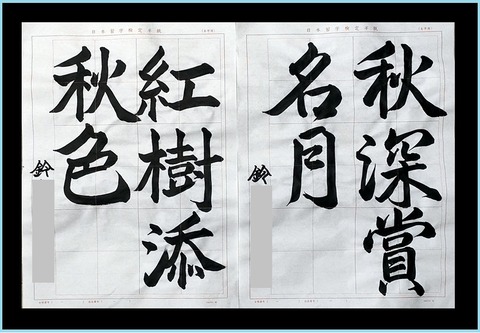 秋深賞
名月
鈴
紅樹添
秋色
鈴